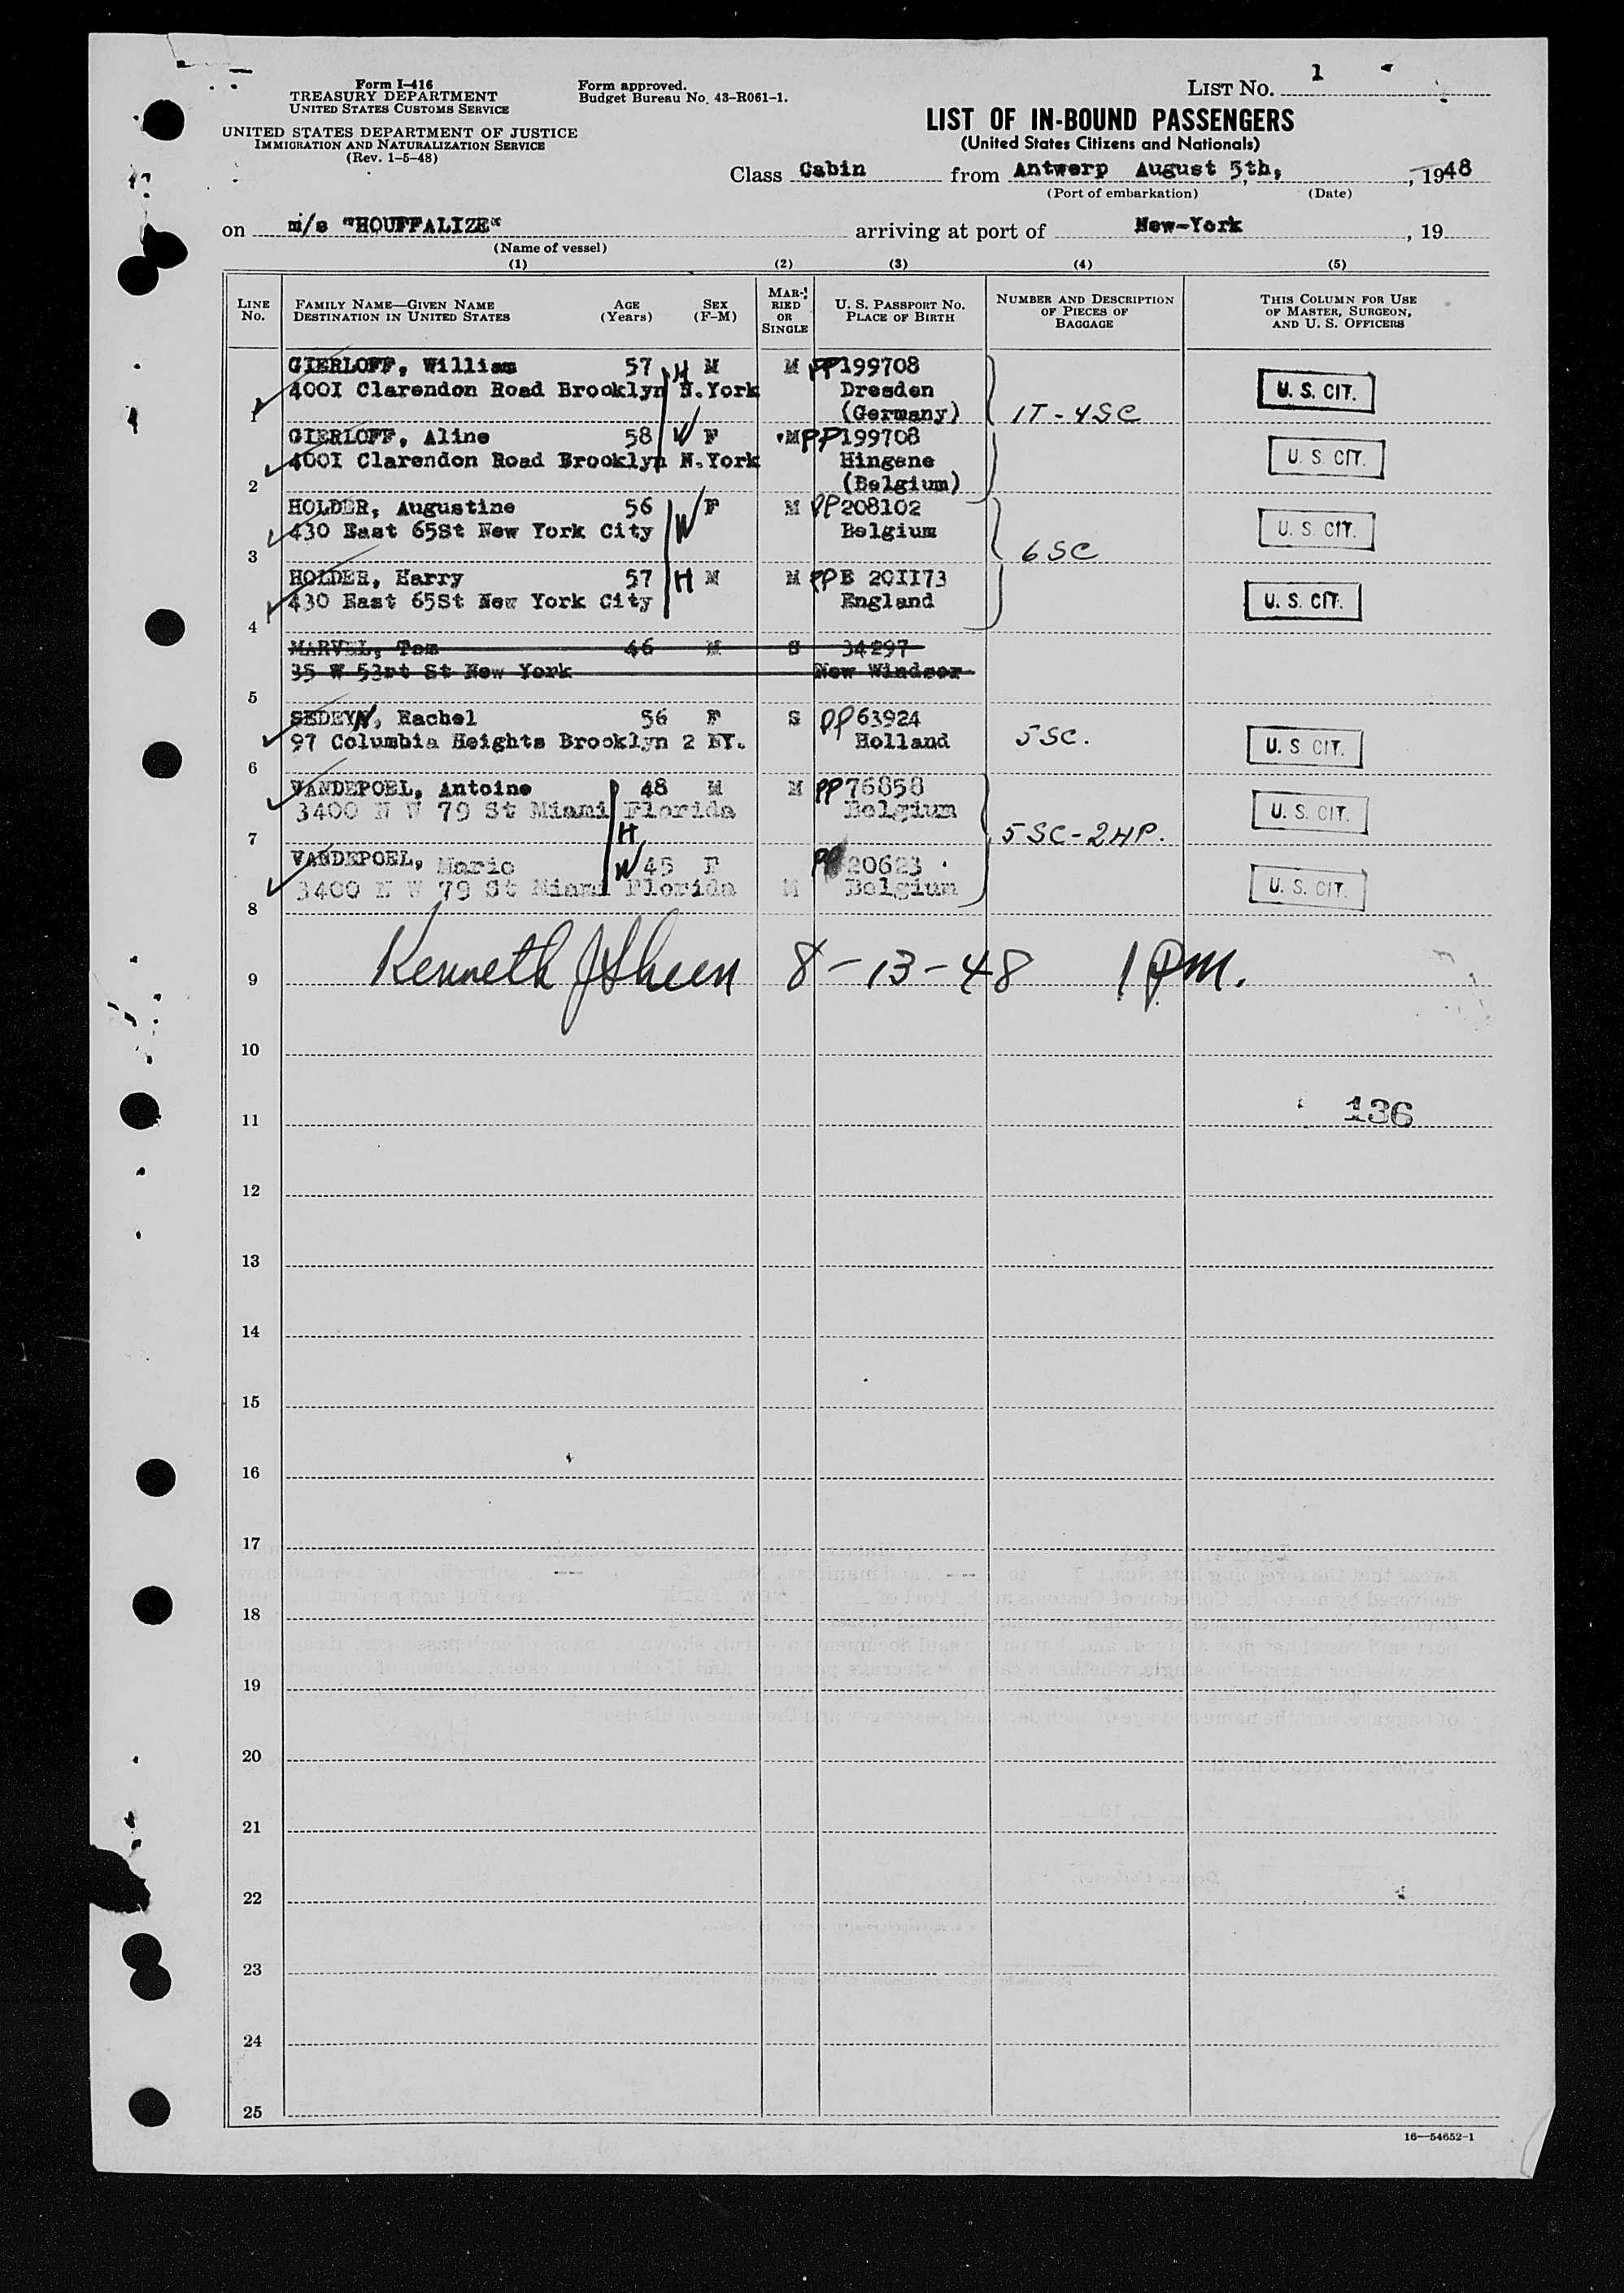 Form I-416
TREASURY DEPARTMENT
UNITED STATES CUSTOMS SERVICE
UNITED STATES DEPARTMENT OF JUSTICE
IMMIGRATION AND NATURALIZATION SERVICE
(Rev. 1-5-48)
Form approved.
Budget Bureau No. 43-R061-1.
LIST NO. 1
LIST OF IN-BOUND PASSENGERS
(United States Citizens and Nationals)
Class Cabin from Antwerp August 5th, , 1948
(Port of embarkation) (Date)
on m/s "HOUFFALIZE" arriving at port of New-York , 19
(Name of vessel)
(1) (2) (3) (4) (5)
LINE NO. FAMILY NAME—GIVEN NAME DESTINATION IN UNITED STATES AGE (Years) SEX (F-M) MARRIED OR SINGLE U. S. PASSPORT NO. PLACE OF BIRTH NUMBER AND DESCRIPTION OF PIECES OF BAGGAGE THIS COLUMN FOR USE OF MASTER, SURGEON, AND U. S. OFFICERS
GIERLOFF, William 57 H M M PP199708
4001 Clarendon Road Brooklyn N.York Dresden U. S. CIT.
1 (Germany) 1T-4SC
GIERLOFF, Aline 58 W F M PP199708
400I Clarendon Road Brooklyn N.York Hingene U. S. CIT.
2 (Belgium)
HOLDER, Augustine 56 W F M PP208102
430 East 65St New York City Belgium U. S. CIT.
3 6SC
HOLDER, Harry 57 H M M PPE 20II73
430 East 65St New York City England U. S. CIT.
4
MARVEL, Tom 46 M S 34297
35 W 53rt St New York New Windsor
5
SEDEYN, Rachel 56 F S PP63924
97 Columbia Heights Brooklyn 2 NY. Holland 5SC. U. S. CIT.
6
VANDEPOEL, Antoine 48 M M PP76858
3400 N W 79 St Miami Florida Belgium U. S. CIT.
7 H 5SC-2HP.
VANDEPOEL, Marie W 45 F PP20623
3400 N W 79 St Miami Florida M Belgium U. S. CIT.
8
9 Kenneth J Sheen 8-13-48 1PM.
10
11 136
12
13
14
15
16
17
18
19
20
21
22
23
24
25
16—54652-1